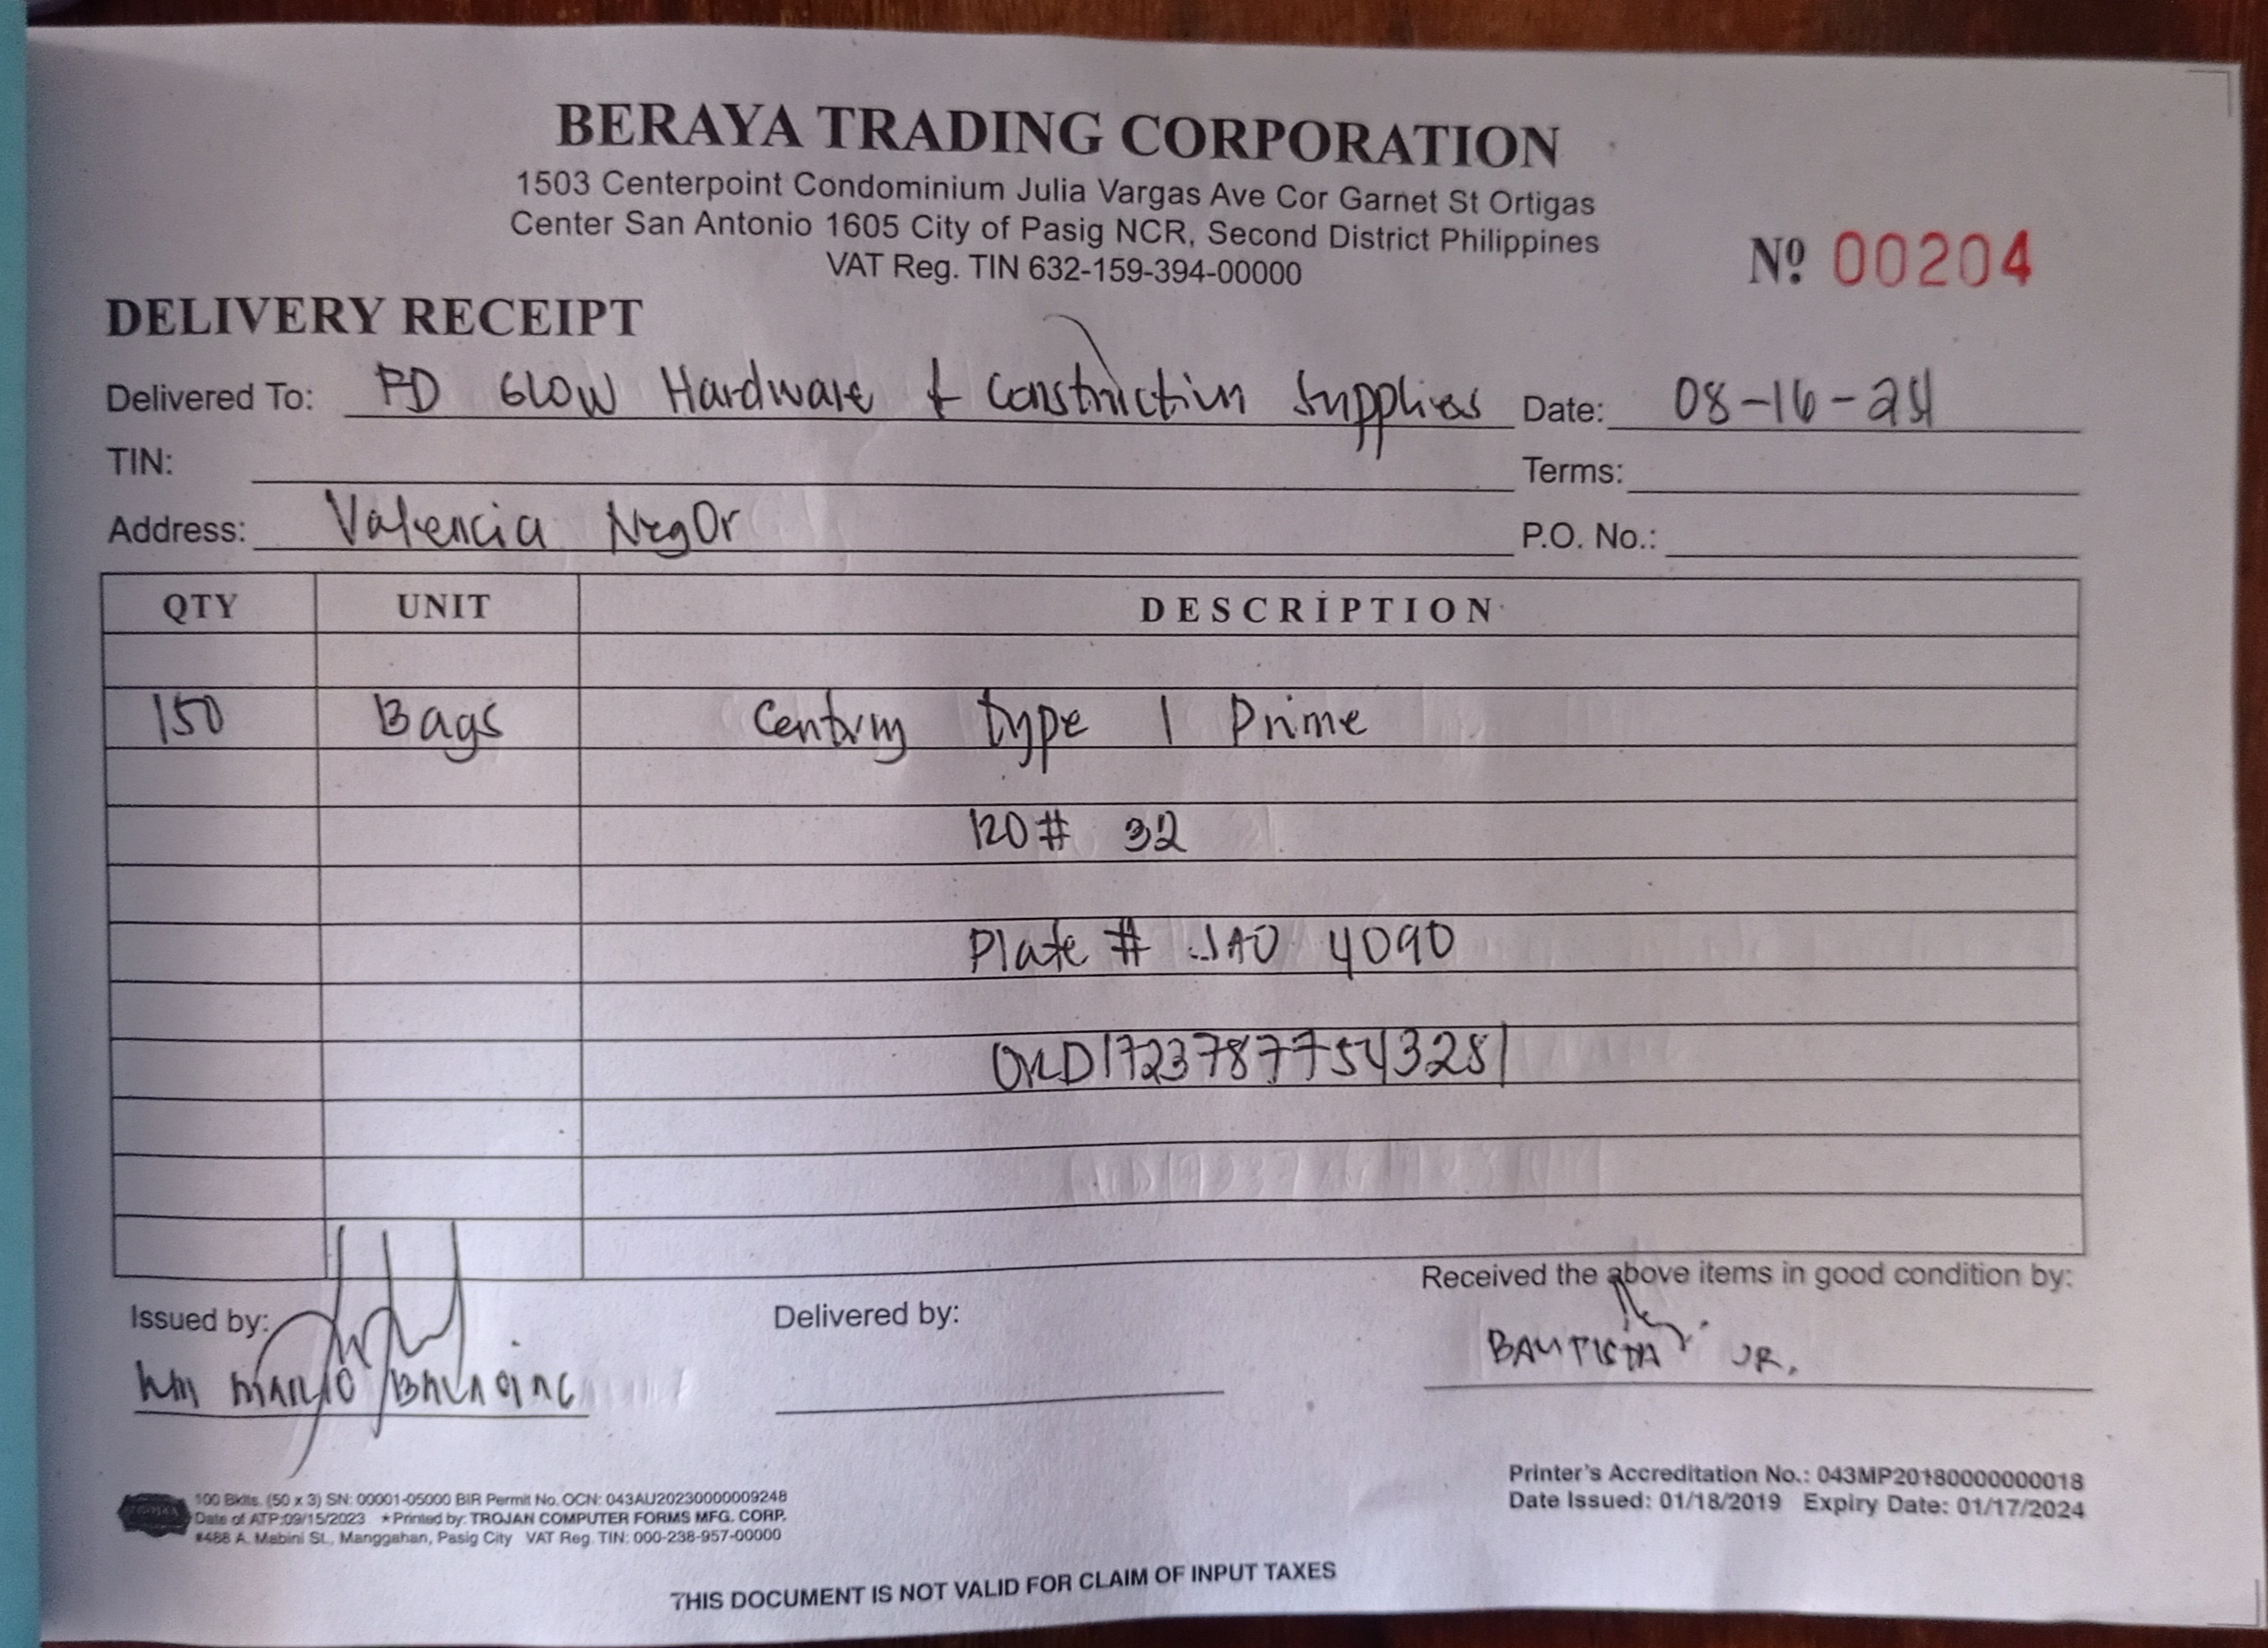 BERAYA TRADING CORPORATION
1503 Centerpoint Condominium Julia Vargas Ave Cor Garnet St Ortigas
Center San Antonio 1605 City of Pasig NCR, Second District Philippines
VAT Reg. TIN 632-159-394-00000
Nº 00204
DELIVERY RECEIPT
Delivered To: PD GLOW Hardware & Construction Supplies Date: 08-16-24
TIN: Terms:
Address: Valencia NegOr P.O. No.:
QTY UNIT DESCRIPTION
150 Bags Century type 1 Prime
120# 32
Plate # JAO 4090
ORD1723787754328 1
Received the above items in good condition by:
Issued by: Delivered by:
BAUTISTA JR.
100 Bklts. (50 x 3) SN: 00001-05000 BIR Permit No. OCN: 043AU20230000009248
Date of ATP:09/15/2023 ★Printed by: TROJAN COMPUTER FORMS MFG. CORP.
#488 A. Mabini St., Manggahan, Pasig City VAT Reg. TIN: 000-238-957-00000
Printer's Accreditation No.: 043MP20180000000018
Date Issued: 01/18/2019 Expiry Date: 01/17/2024
THIS DOCUMENT IS NOT VALID FOR CLAIM OF INPUT TAXES